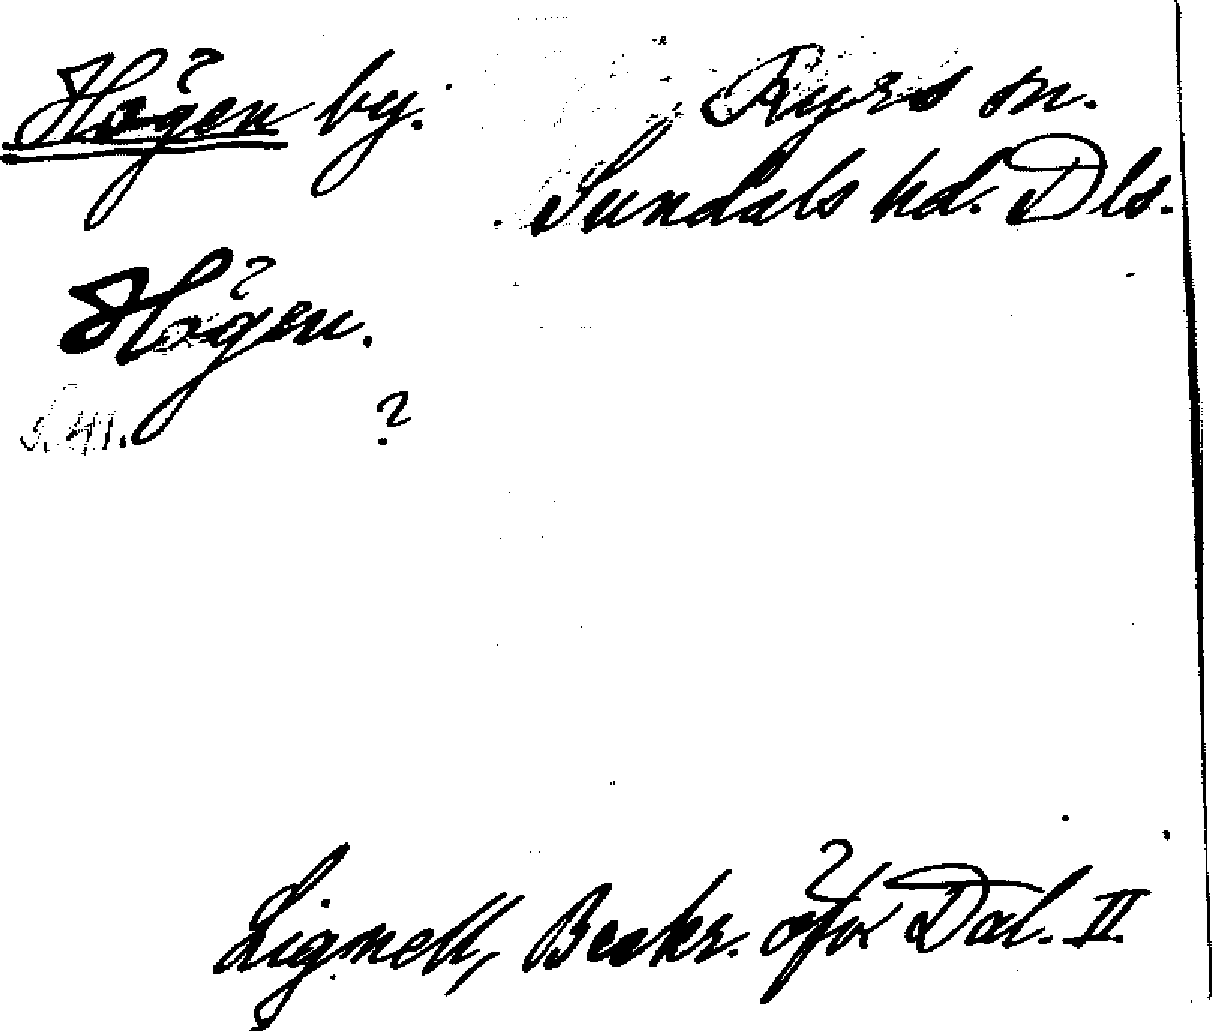 Högen by. Ryrs sn.
Sundals hd. Dls.
Högen.
S. 41. ?
Lignell, Beskr. öfr Dal. II.